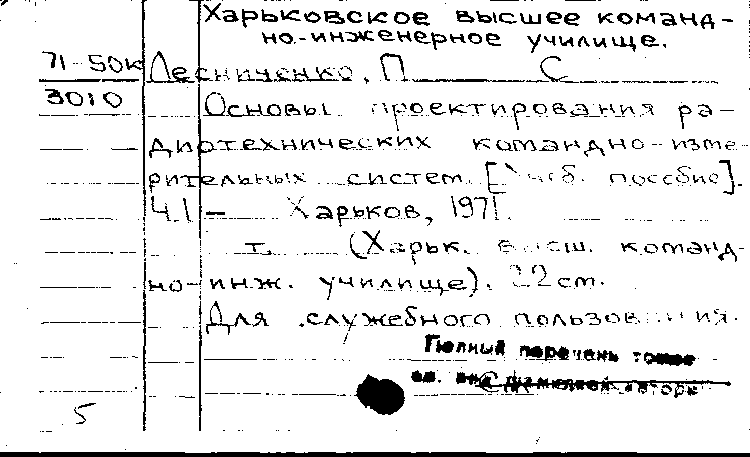 Харьковское высшее команд-
но-инженерное училище.
71-50к Лесниченко, П С
3010 Основы проектирования ра-
диотехнических командно-изме-
рительных систем [Учеб. пособие].
Ч.1 - Харьков, 1971.
т. (Харьк. высш. команд-
но-инж. училище). 22 см.
Для служебного пользования.
Полный перечень томов
см. под фамилией автора
5